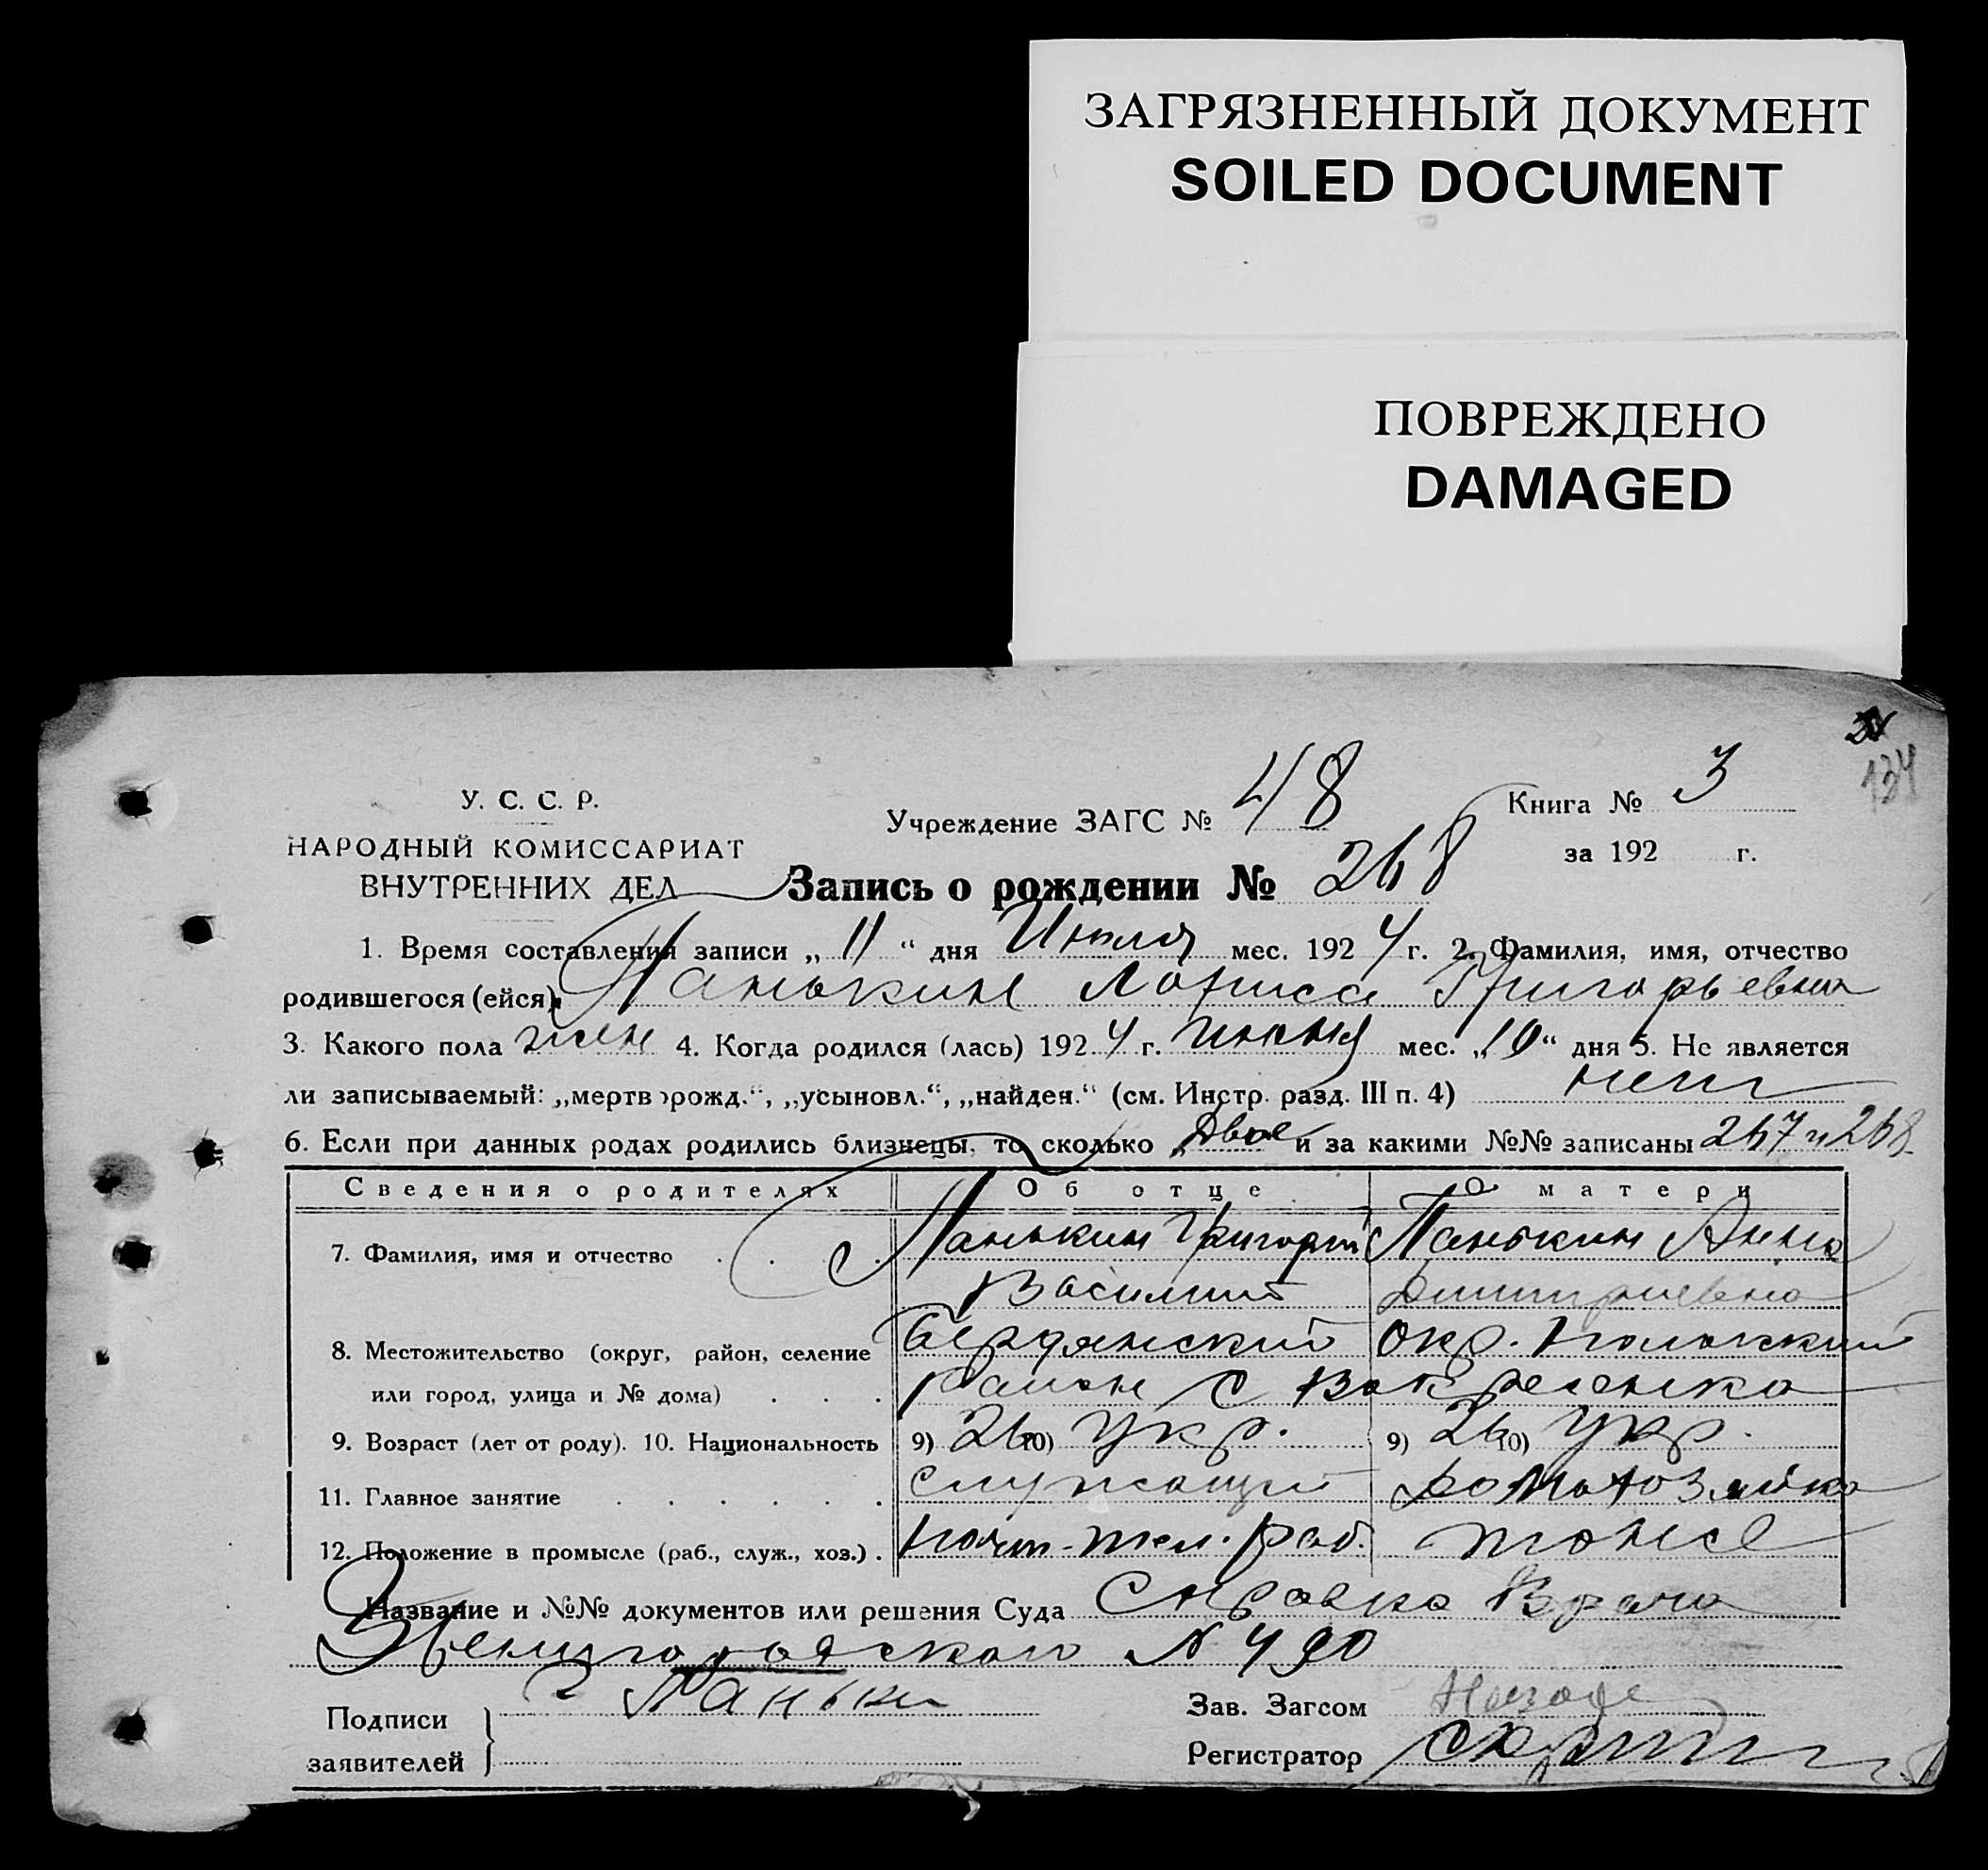 ЗАГРЯЗНЕННЫЙ ДОКУМЕНТ
SOILED DOCUMENT
ПОВРЕЖДЕНО
DAMAGED
134
У. С. С. Р.
НАРОДНЫЙ КОМИССАРИАТ
ВНУТРЕННИХ ДЕЛ
Учреждение ЗАГС № 48
Книга № 3
за 192 г.
Запись о рождении № 268
1. Время составления записи „ 11 “ дня Июля мес. 192 4 г. 2. Фамилия, имя, отчество
родившегося (ейся) Панькин Лориса Григорьевна
3. Какого пола жен 4. Когда родился (лась) 192 4 г. июня мес. „ 10 “ дня 5. Не является
ли записываемый: „мертворожд.“, „усыновл.“, „найден.“ (см. Инстр. разд. III п. 4) нет
6. Если при данных родах родились близнецы, то сколько двое и за какими №№ записаны 267 и 268
Сведения о родителях Об отце О матери
7. Фамилия, имя и отчество Панькин Григорий Панькин Анна
Василий Дмитриевна
8. Местожительство (округ, район, селение Бердянский окр. Пологский
или город, улица и № дома) район с Воскресенка
9. Возраст (лет от роду). 10. Национальность 9) 26 10) укр. 9) 26 10) укр.
11. Главное занятие служащий домохозяйка
12. Положение в промысле (раб., служ., хоз.) почт-тел. раб. тоже
Название и №№ документов или решения Суда Справка Врача
Звенигородского № 490
Подписи заявителей Г Панькин
Зав. Загсом
Регистратор